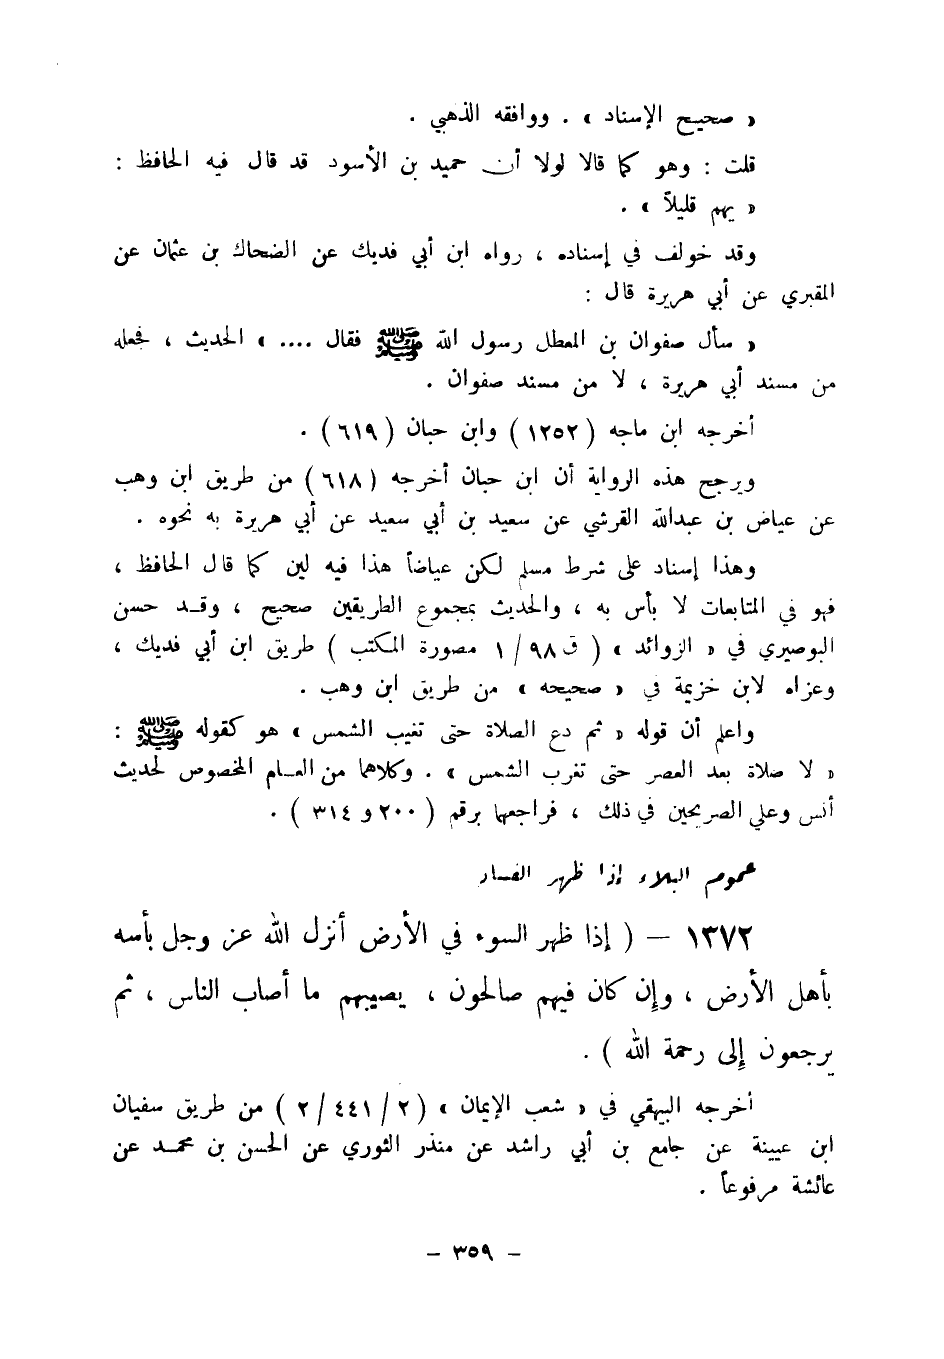 « صحيح الإسناد » . ووافقه الذهبي .
قلت : وهو كما قالا لولا أن حميد بن الأسود قد قال فيه الحافظ :
« يهم قليلاً » .
وقد خولف في إسناده ، رواه ابن أبي فديك عن الضحاك بن عثمان عن
المقبري عن أبي هريرة قال :
« سأل صفوان بن المعطل رسول الله ﷺ فقال .... » الحديث ، فجعله
من مسند أبي هريرة ، لا من مسند صفوان .
أخرجه ابن ماجه ( ١٢٥٢ ) وابن حبان ( ٦١٩ ) .
ويرجح هذه الرواية أن ابن حبان أخرجه ( ٦١٨ ) من طريق ابن وهب
عن عياض بن عبدالله القرشي عن سعيد بن أبي سعيد عن أبي هريرة به نحوه .
وهذا إسناد على شرط مسلم لكن عياضاً هذا فيه لين كما قال الحافظ ،
فهو في المتابعات لا بأس به ، والحديث بمجموع الطريقين صحيح ، وقد حسن
البوصيري في « الزوائد » ( ق ٩٨ / ١ مصورة المكتب ) طريق ابن أبي فديك ،
وعزاه لابن خزيمة في « صحيحه » من طريق ابن وهب .
واعلم أن قوله « ثم دع الصلاة حتى تغيب الشمس » هو كقوله ﷺ :
« لا صلاة بعد العصر حتى تغرب الشمس » . وكلاهما من العام المخصوص لحديث
أنس وعلي الصريحين في ذلك ، فراجعها برقم ( ٢٠٠ و ٣١٤ ) .
عموم البلاء إذا ظهر الفساد
١٣٧٢ – ( إذا ظهر السوء في الأرض أنزل الله عز وجل بأسه
بأهل الأرض ، وإن كان فيهم صالحون ، يصيبهم ما أصاب الناس ، ثم
يرجعون إلى رحمة الله ) .
أخرجه البيهقي في « شعب الإيمان » ( ٢ / ٤٤١ / ٢ ) من طريق سفيان
ابن عيينة عن جامع بن أبي راشد عن منذر الثوري عن الحسن بن محمد عن
عائشة مرفوعاً .
– ٣٥٩ –